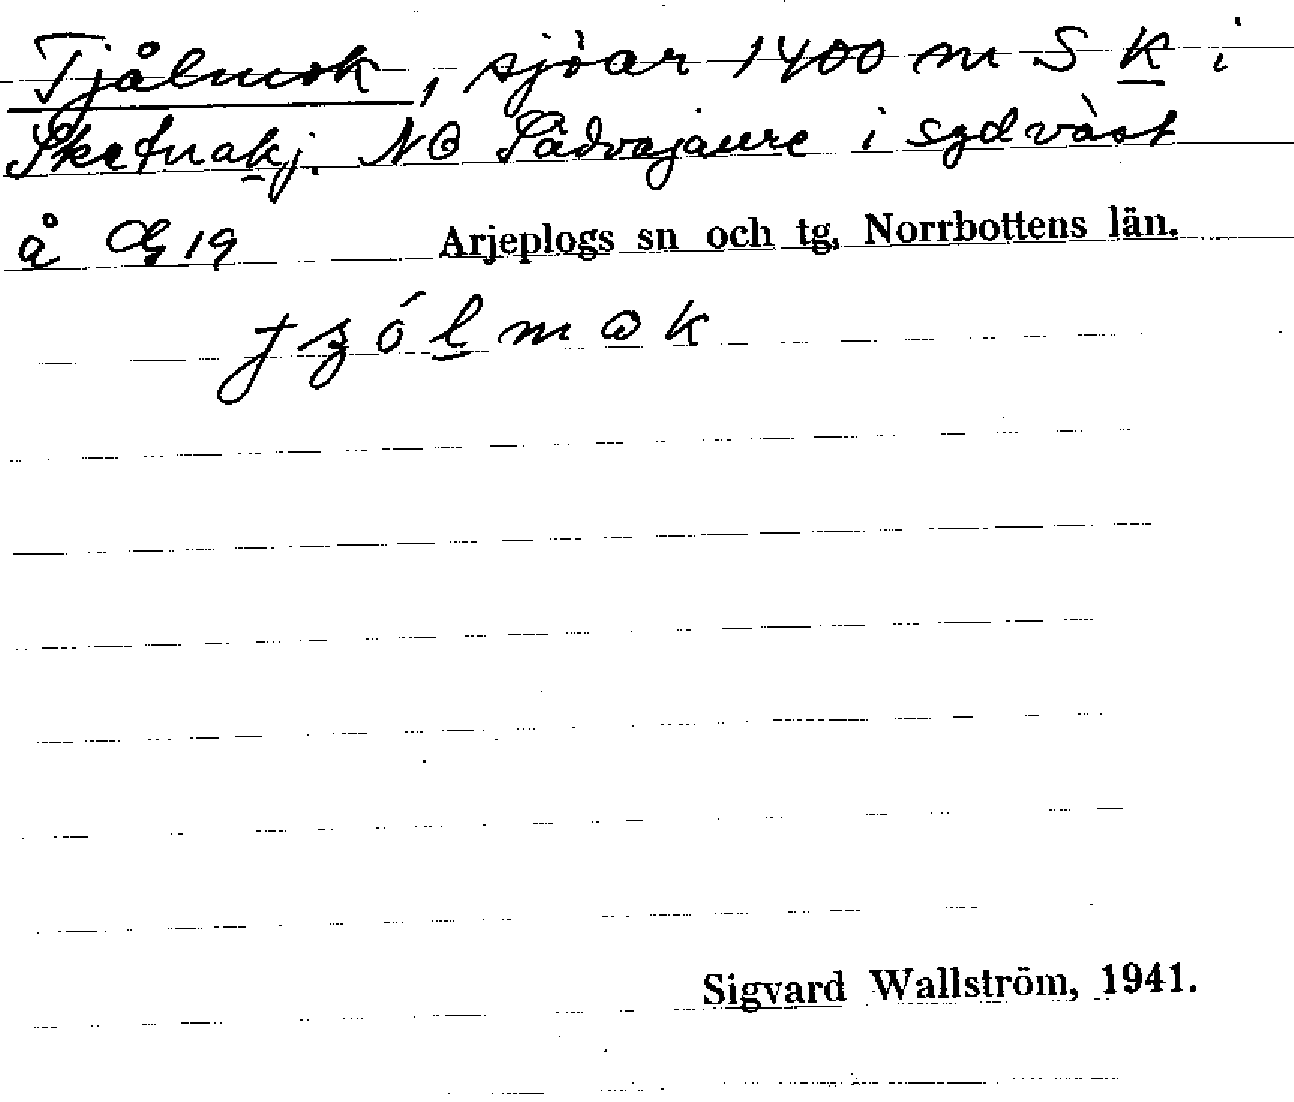 Tjålmok, sjöar 1400 m S k i
Sketnakj. NO Sädvajaure i sydväst
å Œ 19 Arjeplogs sn och tg, Norrbottens län.
Sigvard Wallström, 1941.